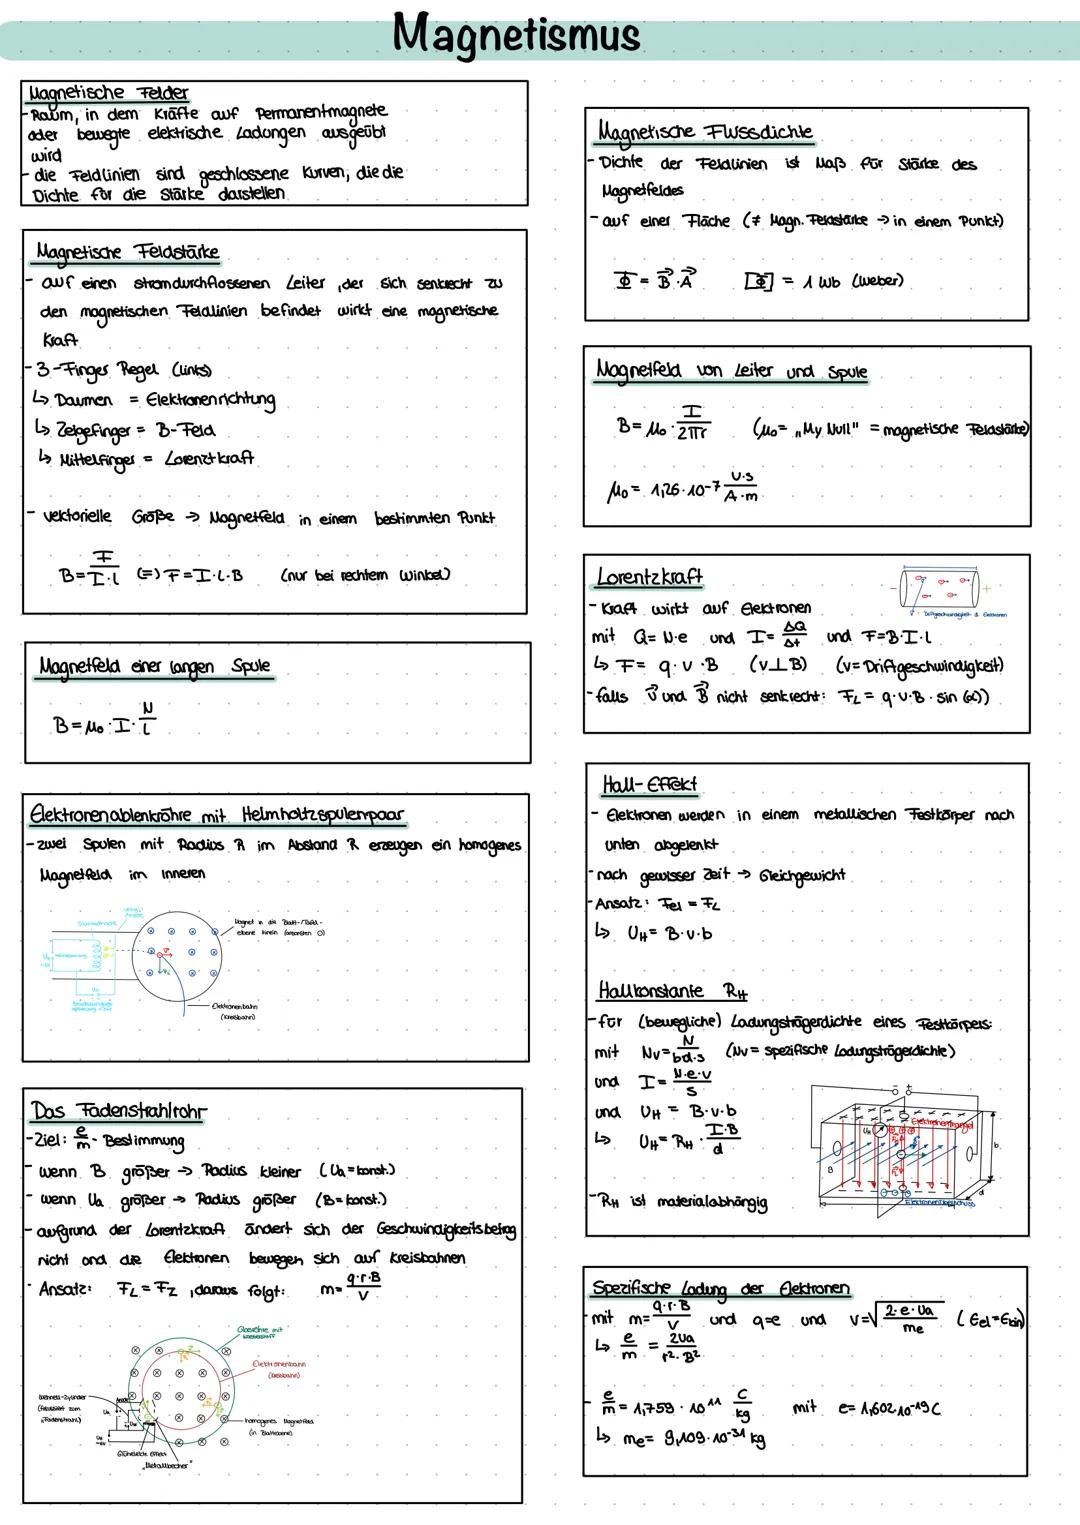 Magnetismus
Magnetische Felder
- Raum, in dem Kräfte auf Permanentmagnete
oder bewegte elektrische Ladungen ausgeübt
wird
- die Feldlinien sind geschlossene Kurven, die die
Dichte für die Stärke darstellen
Magnetische Feldstärke
- auf einen stromdurchflossenen Leiter, der sich senkrecht zu
den magnetischen Feldlinien befindet wirkt eine magnetische
Kraft
- 3-Finger Regel (links)
↳ Daumen = Elektronenrichtung
↳ Zeigefinger = B-Feld
↳ Mittelfinger = Lorentzkraft
- vektorielle Größe → Magnetfeld in einem bestimmten Punkt
B = F/(I·l) (=) F = I·L·B (nur bei rechtem Winkel)
Magnetfeld einer langen Spule
B = μ₀ · I · N/l
Elektronenablenkröhre mit Helmholtzspulenpaar
- zwei Spulen mit Radius R im Abstand R erzeugen ein homogenes
Magnetfeld im Inneren
Magnet in die Blatt-/Tafel-
ebene hinein
Elektronenbahn
(Kreisbahn)
Das Fadenstrahlrohr
- Ziel: e/m - Bestimmung
- wenn B größer → Radius kleiner (Ua = konst.)
- wenn Ua größer → Radius größer (B = konst.)
- aufgrund der Lorentzkraft ändert sich der Geschwindigkeitsbetrag
nicht und die Elektronen bewegen sich auf Kreisbahnen
- Ansatz: F_L = F_Z, daraus folgt: m = q·r·B/v
Glasröhre mit
Wasserstoff
Elektronenbahn
(Kreisbahn)
Wehnelt-Zylinder
(fokussiert zum
"Fadenstrahl)
Anode
homogenes Magnetfeld
(in Blattebene)
Glühelektr. Effekt
"Metallbecher"
Magnetische Flussdichte
- Dichte der Feldlinien ist Maß für Stärke des
Magnetfeldes
- auf einer Fläche (≠ Magn. Feldstärke → in einem Punkt)
Φ = B⃗·A⃗ [Φ] = 1 Wb (Weber)
Magnetfeld von Leiter und Spule
B = μ₀ · I/(2πr) (μ₀ = „My Null" = magnetische Feldstärke)
μ₀ = 1,26·10⁻⁷ V·s/(A·m)
Lorentzkraft
- Kraft wirkt auf Elektronen
mit Q = N·e und I = ΔQ/Δt und F = B·I·l
↳ F = q·v·B (v⊥B) (v = Driftgeschwindigkeit)
- falls v⃗ und B⃗ nicht senkrecht: F_L = q·v·B·sin(α))
v: Driftgeschwindigkeit d. Elektronen
Hall-Effekt
- Elektronen werden in einem metallischen Festkörper nach
unten abgelenkt
- nach gewisser Zeit → Gleichgewicht
- Ansatz: Fel = F_L
↳ U_H = B·v·b
Hallkonstante R_H
- für (bewegliche) Ladungsträgerdichte eines Festkörpers:
mit Nv = N/(b·d·s) (Nv = spezifische Ladungsträgerdichte)
und I = N·e·v/s
und U_H = B·v·b
↳ U_H = R_H · I·B/d
Elektronenmangel
B
b
d
Elektronenüberschuss
- R_H ist materialabhängig
Spezifische Ladung der Elektronen
- mit m = q·r·B/v und q=e und v = √(2·e·Ua/me) (Eel = Ekin)
↳ e/m = 2Ua/(r²·B²)
- e/m = 1,759·10¹¹ C/kg mit e = 1,602·10⁻¹⁹ C
↳ me = 9,109·10⁻³¹ kg